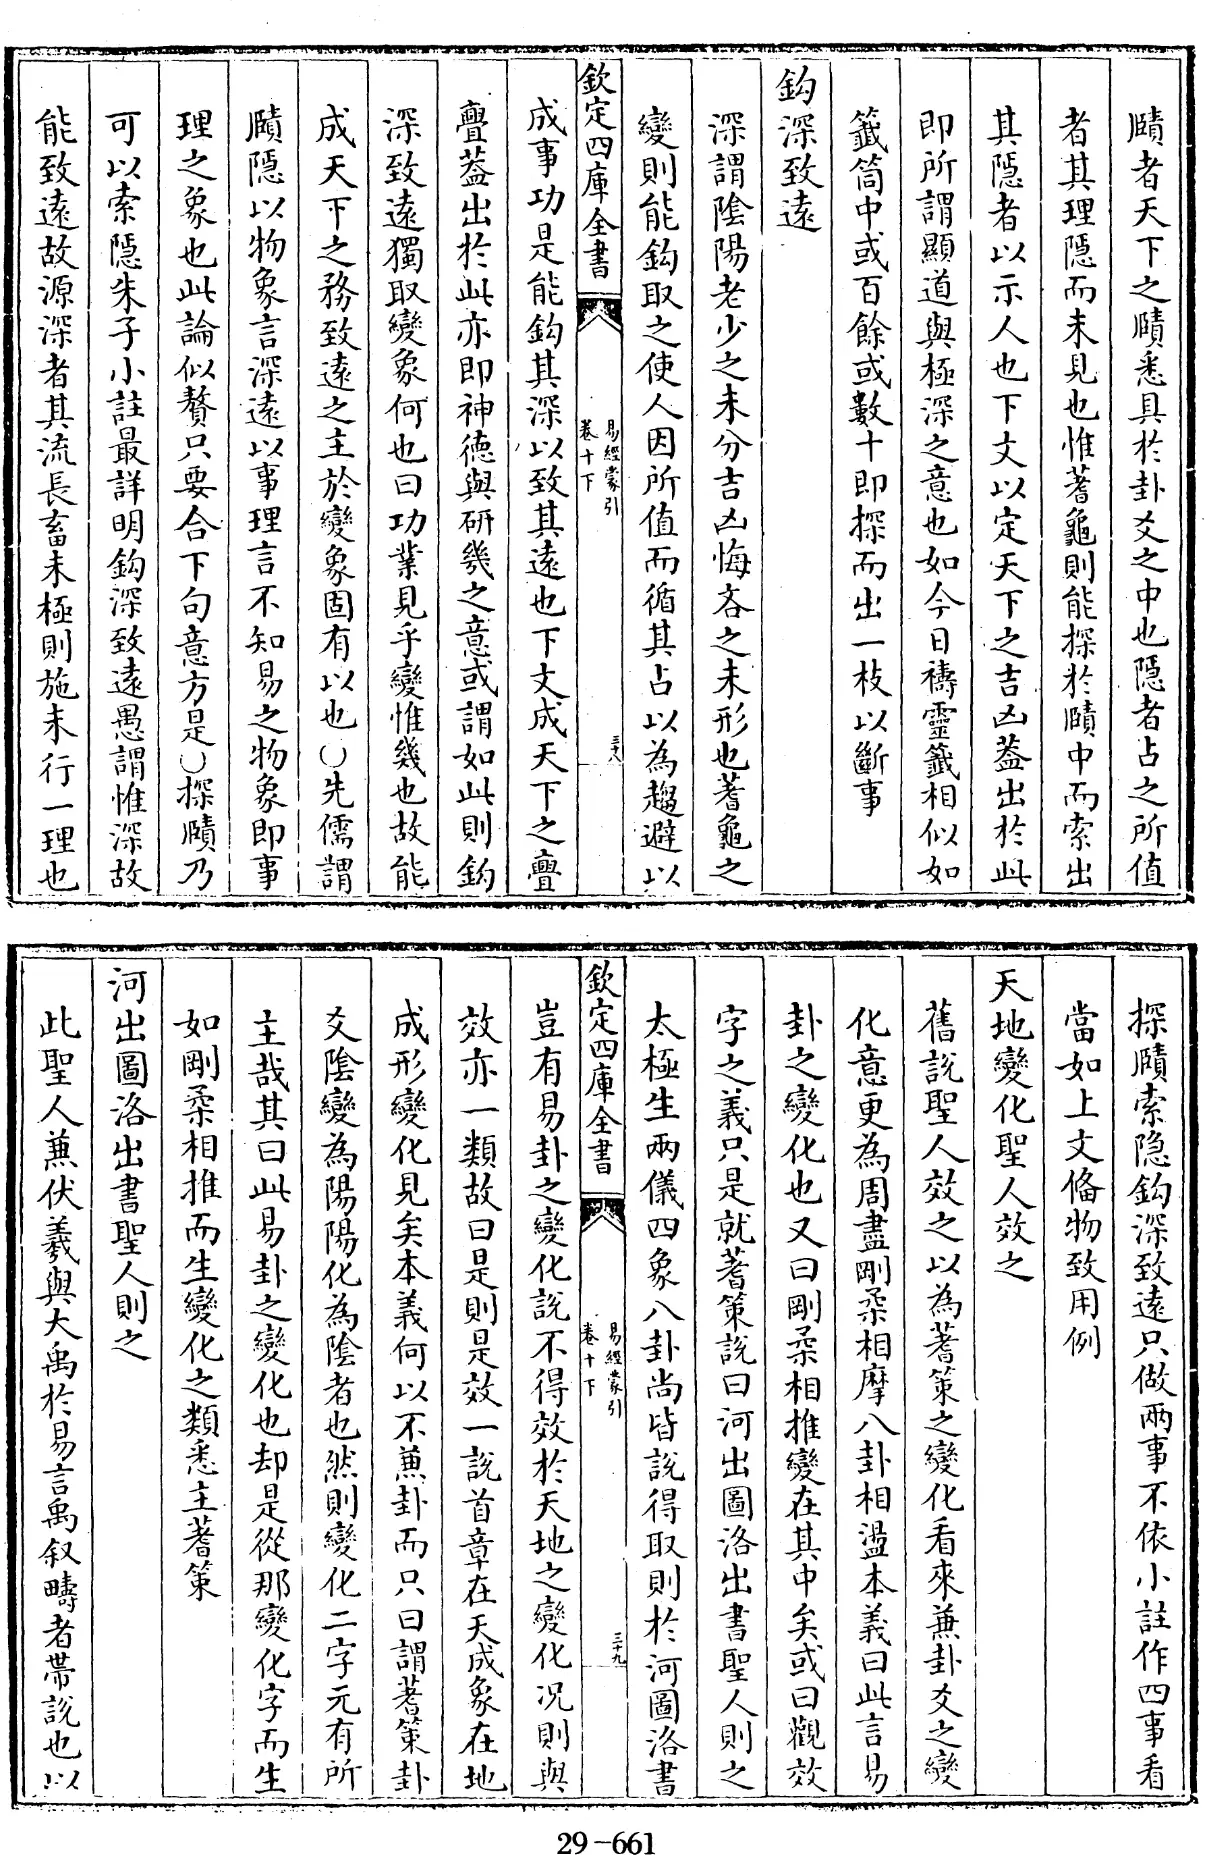 賾者天下之賾悉具於卦爻之中也隱者占之所值
者其理隱而未見也惟蓍龜則能探於賾中而索出
其隱者以示人也下文以定天下之吉凶蓋出於此
即所謂顯道與極深之意也如今日禱靈籤相似如
籤筒中或百餘或數十即探而出一枝以斷事
鈎深致遠
深謂陰陽老少之未分吉凶悔吝之未形也蓍龜之
變則能鈎取之使人因所值而循其占以為趨避以
欽定四庫全書
易經蒙引
卷十下
三十八
成事功是能鈎其深以致其遠也下文成天下之亹
亹蓋出於此亦即神德與研幾之意或謂如此則鈎
深致遠獨取變象何也曰功業見乎變惟幾也故能
成天下之務致遠之主於變象固有以也○先儒謂
賾隱以物象言深遠以事理言不知易之物象即事
理之象也此論似贅只要合下句意方是○探賾乃
可以索隱朱子小註最詳明鈎深致遠愚謂惟深故
能致遠故源深者其流長畜未極則施未行一理也
探賾索隐鈎深致遠只做兩事不依小註作四事看
當如上文備物致用例
天地變化聖人效之
舊説聖人效之以為蓍策之變化看來兼卦爻之變
化意更為周盡剛柔相摩八卦相盪本義曰此言易
卦之變化也又曰剛柔相推變在其中矣或曰觀效
字之義只是就蓍策説曰河出圖洛出書聖人則之
太極生兩儀四象八卦尚皆説得取則於河圖洛書
欽定四庫全書
易經蒙引
卷十下
三十九
豈有易卦之變化説不得效於天地之變化况則與
效亦一類故曰是則是效一説首章在天成象在地
成形變化見矣本義何以不兼卦而只曰謂蓍策卦
爻陰變為陽陽化為陰者也然則變化二字元有所
主哉其曰此易卦之變化也却是從那變化字而生
如剛柔相推而生變化之類悉主蓍策
河出圖洛出書聖人則之
此聖人兼伏羲與大禹於易言禹叙疇者帶説也以
29-661